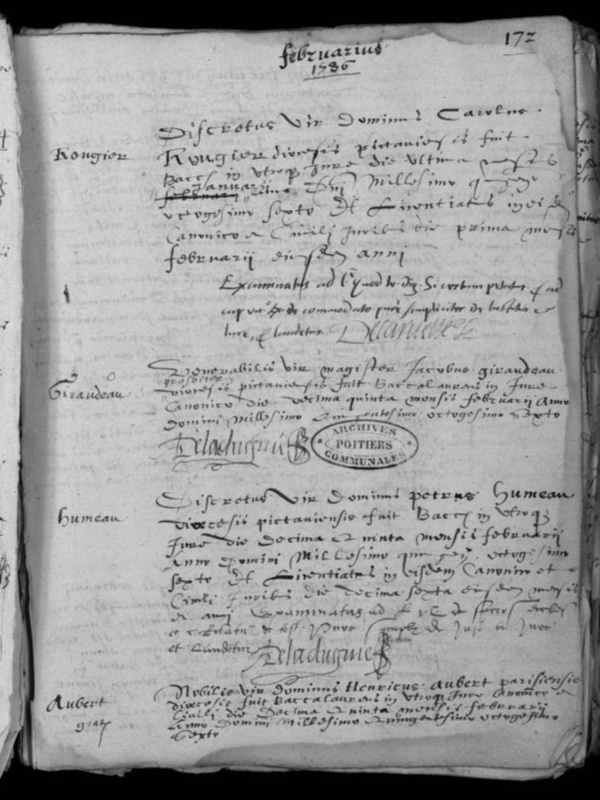 172
februarius
1586
Discretus vir Dominus Carolus
Rougier
Rougier diocesis pictaviensis fuit
Bacc in utroq Jure die ultima mensis
februarii Januarii Anno Dni Millesimo
octogesimo sexto Et Licentiatus in eisdem
Canonico et Civili Juribus die prima mensis
februarii eiusdem anni
Examinatus ad l.
commodato pure simpliciter de Justitia
et laudetur
Venerabilis vir magister Jacobus giraudeau
Giraudeau
presbiter
diocesis pictaviensis fuit Baccalaureus in Jure
Canonico die decima quinta mensis februarii Anno
domini millesimo quingentesimo octogesimo sexto
Deladugnie
ARCHIVES
POITIERS
COMMUNALES
Discretus vir dominus petrus Humeau
Humeau
diocesis pictaviensis fuit Bacc in utroq
Jure die decima quinta mensis februarii
Anno Domini Millesimo quingen. octogesimo
sexto Et Licentiatus in eisdem Canonico et
Civili Juribus die decima sexta eiusdem mensis
et anni Examinatus ad
de Jure
et laudetur
Deladugnie
Nobilis vir dominus Henricus Aubert parisiensis
Aubert
gratis
diocesis fuit Baccalaureus in utroq Jure Canonico et
Civili die decima quinta mensis februarii
Anno Domini Millesimo quingentesimo octogesimo
sexto